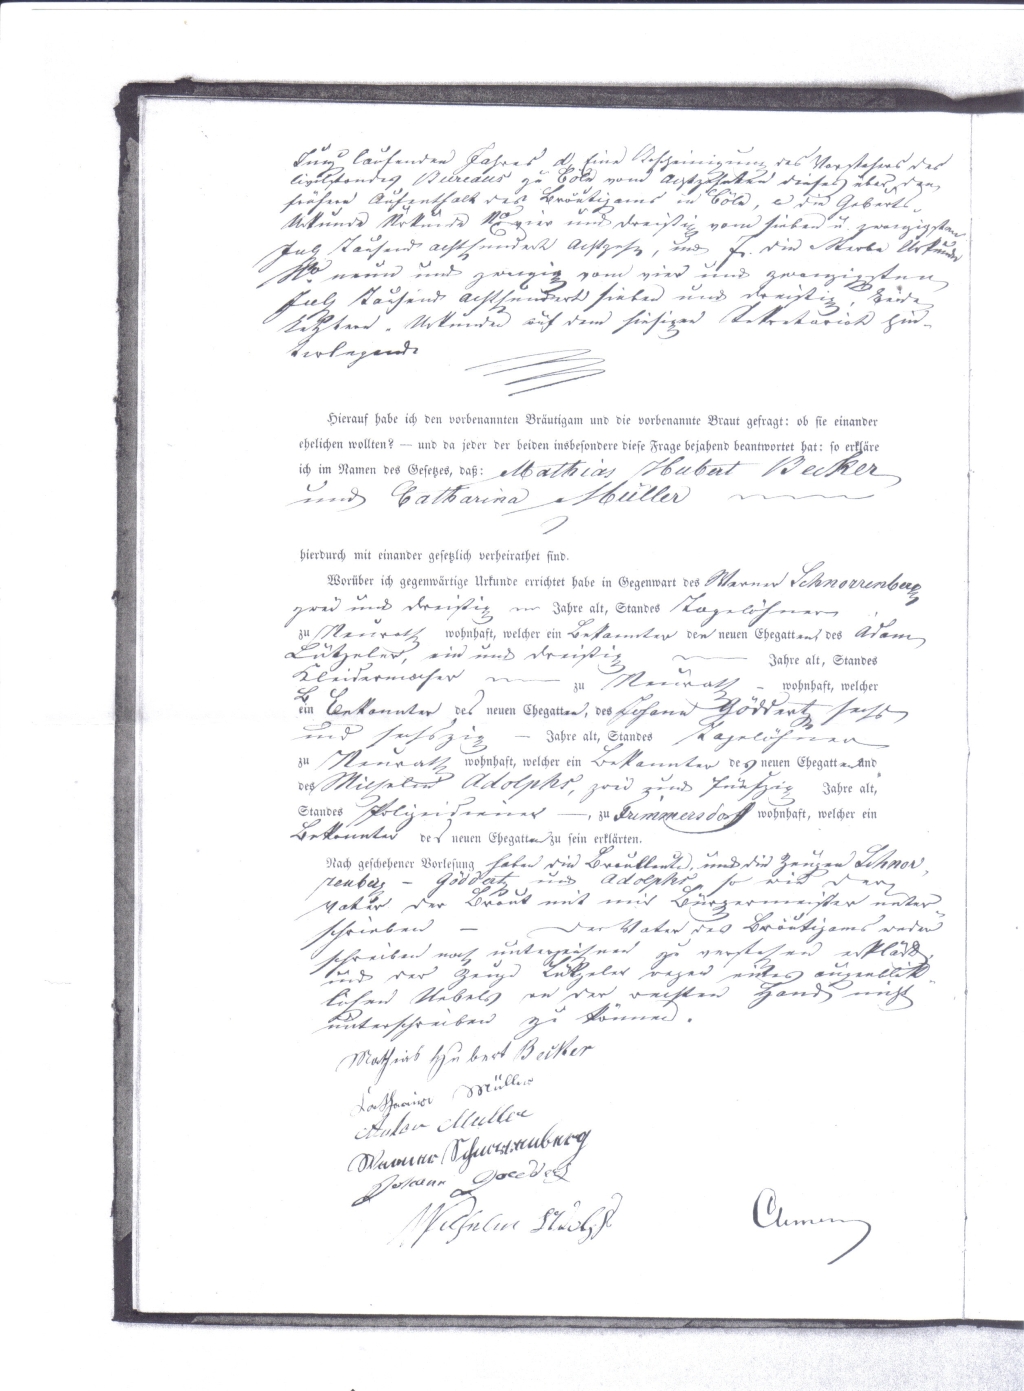 Juny laufenden Jahres d, Eine Bescheinigung des Vorstehers des
Civilstandes Bureaus zu Cöln vom Achtzehnten dieses über den
frühern Aufenthalt des Bräutigams in Cöln, e die Geburts-
Urkunde Urkunde No vier und dreißig vom sieben u. zwanzigsten
July Tausend achthundert achtzehn, und f. die Sterbe Urkunde
No neun und zwanzig vom vier und zwanzigsten
July Tausend achthundert sieben und dreißig, beide
letztern Urkunden auf dem hiesigen Sekretariat hin-
terlegend
Hierauf habe ich den vorbenannten Bräutigam und die vorbenannte Braut gefragt: ob sie einander
ehelichen wollten? — und da jeder der beiden insbesondere diese Frage bejahend beantwortet hat: so erkläre
ich im Namen des Gesetzes, daß: Mathias Hubert Becker
und Catharina Müller
hierdurch mit einander gesetzlich verheirathet sind.
Worüber ich gegenwärtige Urkunde errichtet habe in Gegenwart des Werner Schnorrenberg
zwei und dreißig Jahre alt, Standes Tagelöhner
zu Neurath wohnhaft, welcher ein Bekannter der neuen Ehegatten, des Adam
Lützeler, ein und dreißig Jahre alt, Standes
Kleidermacher zu Neurath wohnhaft, welcher
ein Bekannter der neuen Ehegatten, des Johann Göddertz sechs
und sechszig Jahre alt, Standes Tagelöhner
zu Neurath wohnhaft, welcher ein Bekannter der neuen Ehegatten und
des Wilhelm Adolphs, zwei und fünfzig Jahre alt,
Standes Polizeidiener —, zu Frimmersdorf wohnhaft, welcher ein
Bekannter der neuen Ehegatten zu sein erklärten.
Nach geschehener Vorlesung haben die Brautleute, und die Zeugen Schnor,
renberg – Göddertz und Adolphs, so wie der
Vater der Braut mit mir Bürgermeister unter
schrieben — Der Vater des Bräutigams weder
schreiben noch unterzeichnen zu verstehen erklärt,
und der Zeuge Lützeler wegen eines augenblick
lichen Uebels an der rechten Hand nicht
unterschreiben zu können.
Mathias Hubert Becker
Catharina Müller
Anton Müller
Werner Schnorrenberg
Johann Goedderz
Wilhelm Adolphs
Clemens